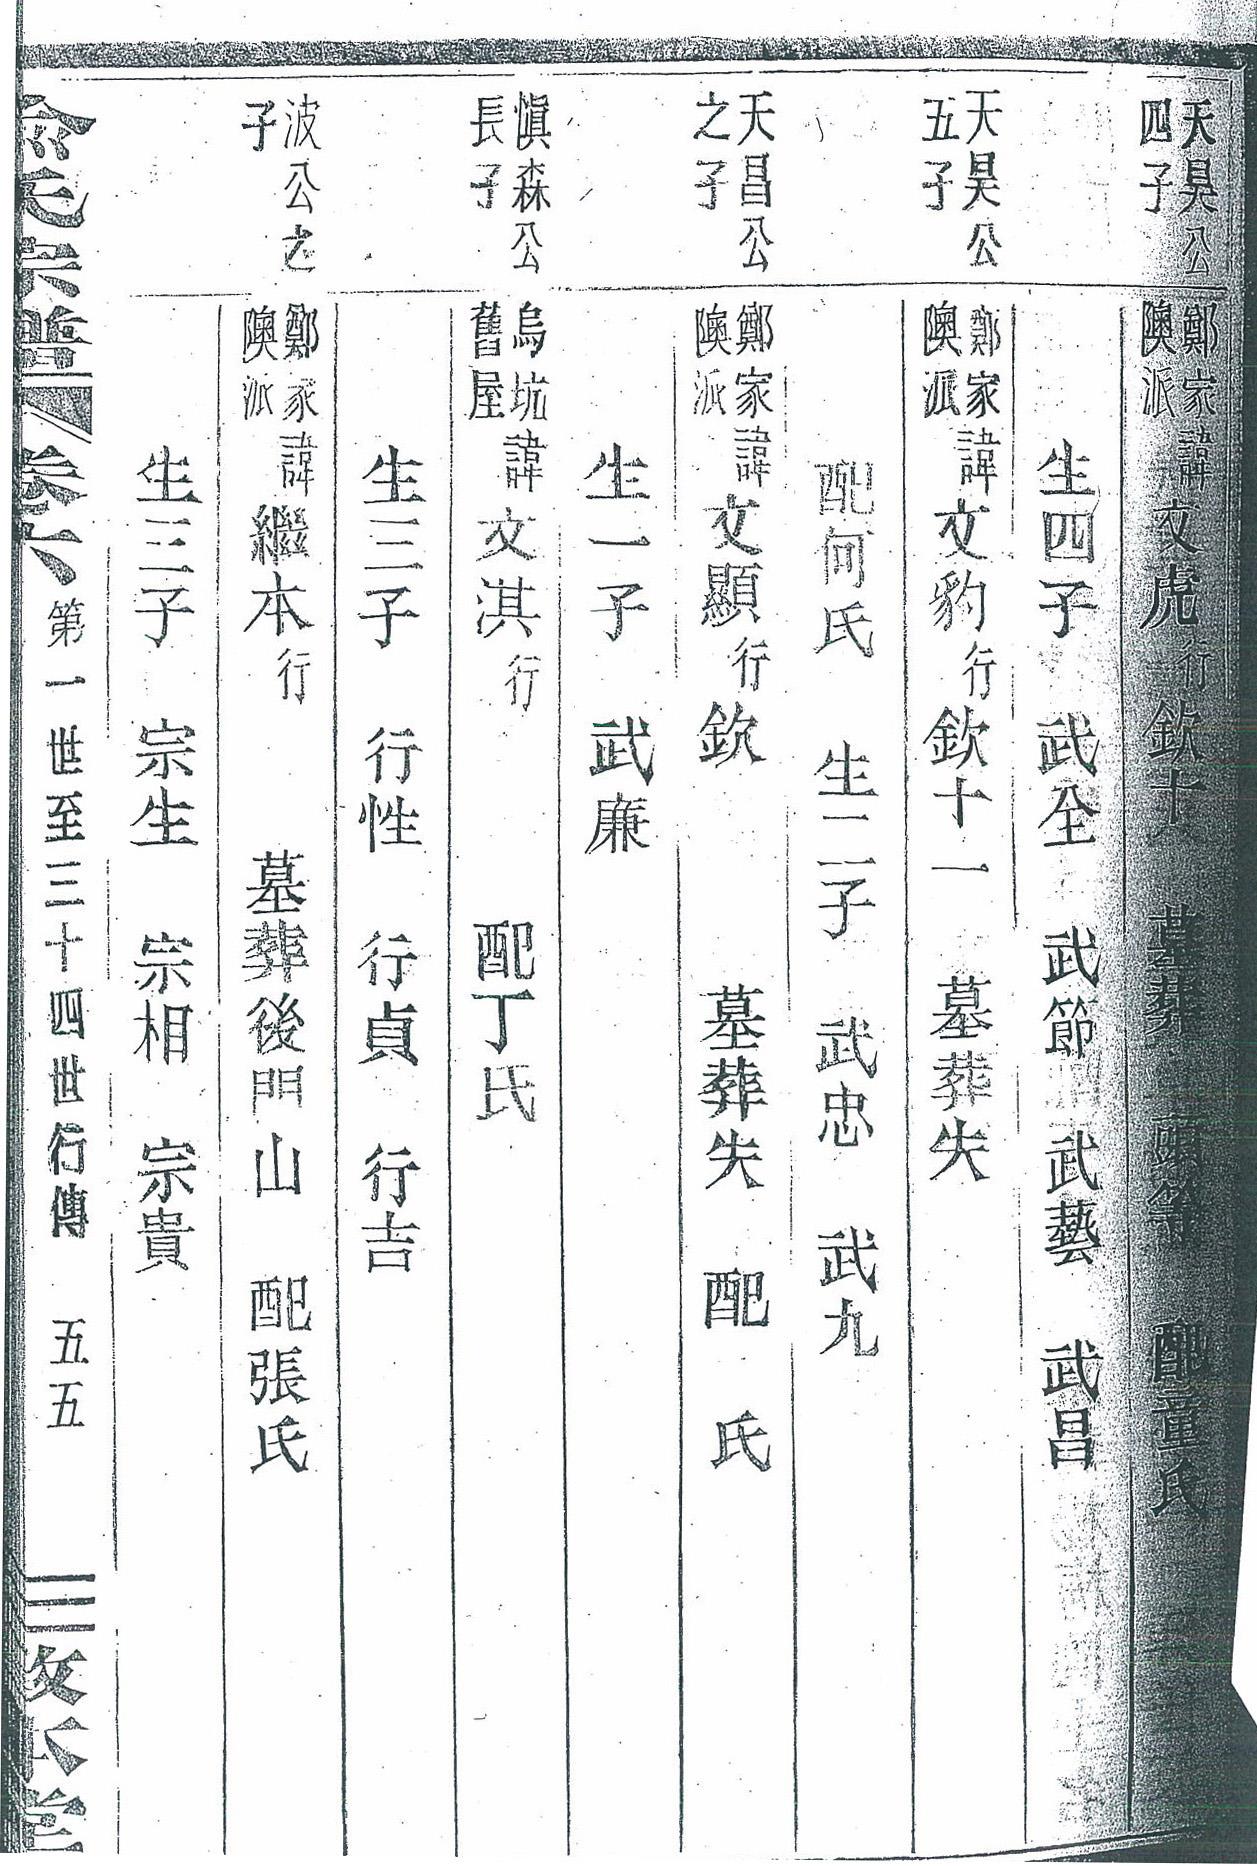 天昊公四子
鄭家隩派諱文虎行欽十八　墓葬　配童氏
生四子　武全　武節　武藝　武昌
天昊公五子
鄭家隩派諱文豹行欽十一　墓葬失
配何氏　生二子　武忠　武九
天昌公之子
鄭家隩派諱文顯行欽　墓葬失　配　氏
生一子　武廉
慎森公長子
烏坑舊屋諱文淇行　配丁氏
生三子　行性　行貞　行吉
波公之子
鄭家隩派諱繼本行　墓葬後門山　配張氏
生三子　宗生　宗相　宗貴
氏宗譜　卷六　第一世至三十四世行傳　五五